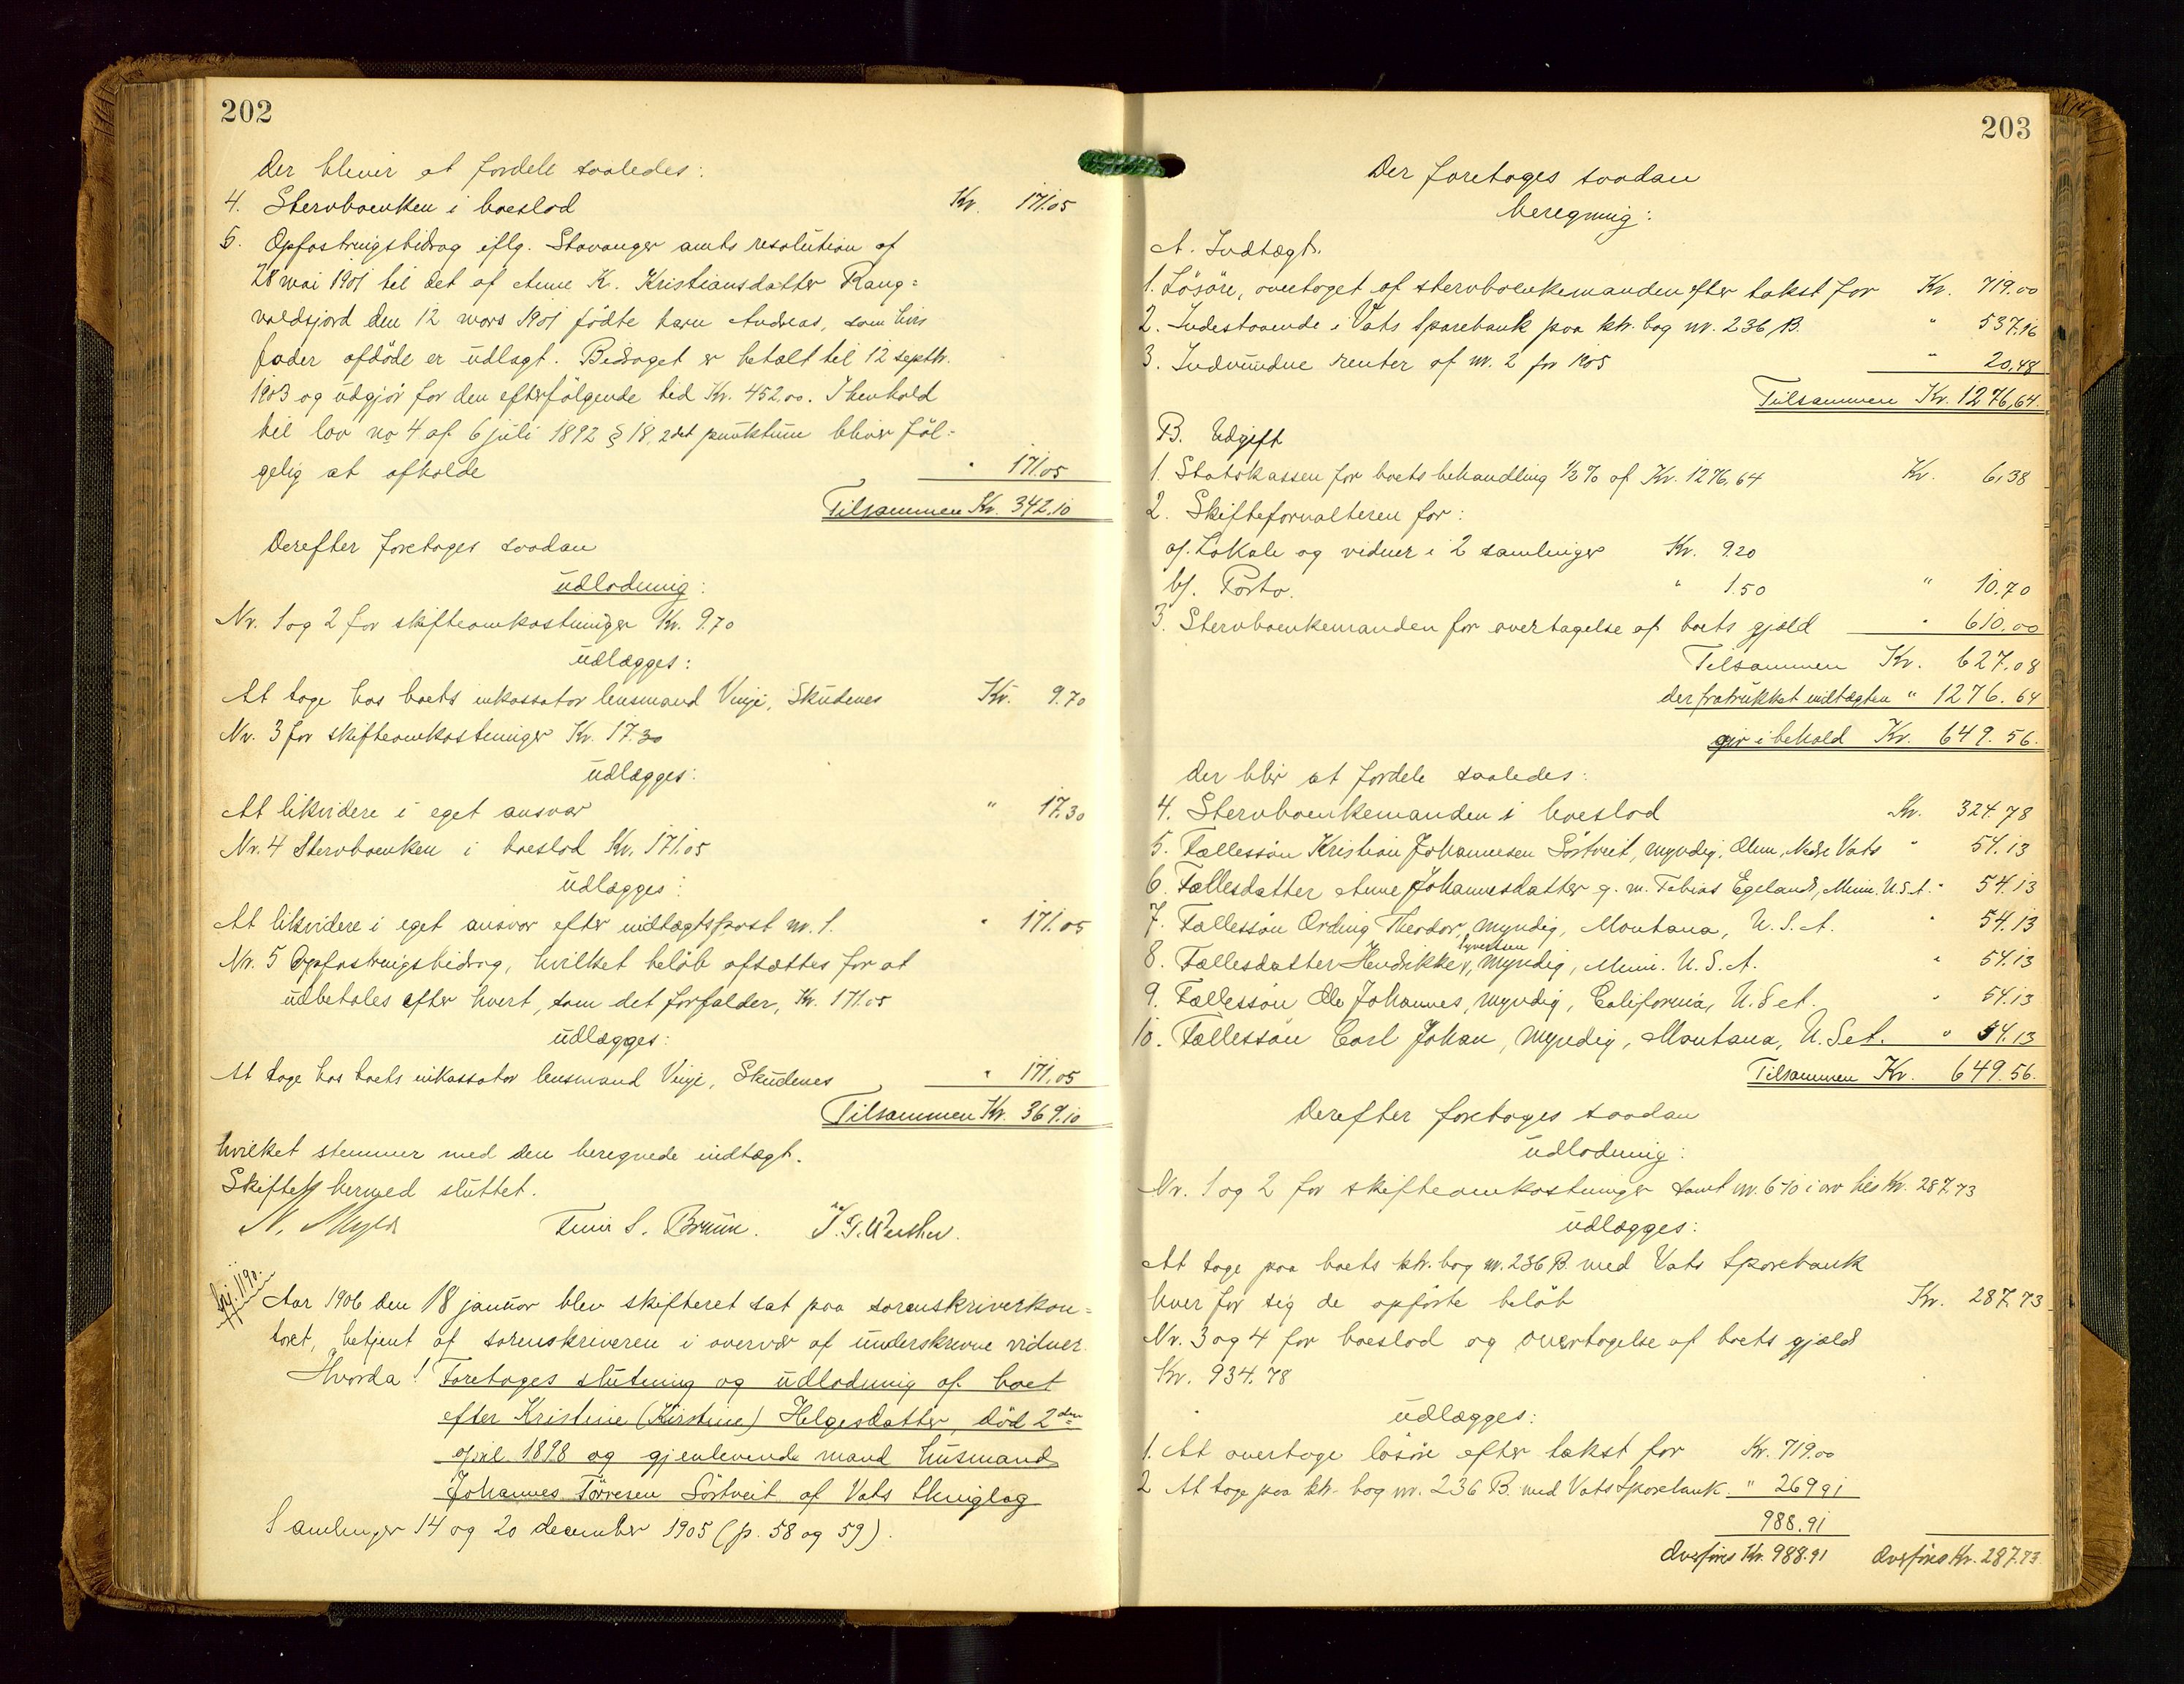 202
Der bliver at fordele saaledes:
4. Stervboenken i boeslod Kr. 171.05
5. Opfostringsbidrag iflg. Stavanger amts resolution af
28 mai 1901 til det af Anne K. Kristiansdatter Rang=
valdsjord den 12 mars 1901 födte barn Andreas, som hvis
fader afdöde er udlagt. Bidraget er betalt til 12 septbr.
1903 og udgjör for den efterfölgende tid Kr. 452.00. I henhold
til lov no 4 af 6 juli 1892 § 18, 2det punktum bliver föl=
gelig at afholde " 171.05
Tilsammen Kr. 342.10
Derefter foretages saadan
udlodning:
Nr. 1 og 2 for skifteomkostninger Kr. 9.70
udlægges:
At tage hos boets inkassator lensmand Vinje, Skudenes Kr. 9.70
Nr. 3 for skifteomkostninger Kr. 17.30
udlægges:
At likvidere i eget ansvar " 17.30
Nr. 4 Stervboenken i boeslod Kr. 171.05
udlægges:
At likvidere i eget ansvar efter indtægtspost nr. 1. " 171.05
Nr. 5 Opfostringsbidrag, hvilket belöb afsættes for at
udbetales efter hvert, som det forfalder, Kr. 171.05
udlægges:
At tage hos boets inkassator lensmand Vinje, Skudenes " 171.05
Tilsammen Kr. 369.10
hvilket stemmer med den beregnede indtægt.
Skiftet hermed sluttet.
N. Meyer
Aar 1906 den 18 januar blev skifteret sat paa sorenskriverkon=
toret, betjent af sorenskriveren i overvær af underskrevne vidner.
Hvorda! Foretages slutning og udlodning af boet
efter Kristine (Kirstine) Helgesdatter, död 2den
april 1898 og gjenlevende mand husmand
Johannes Törresen Söstveit af Vats thinglag
Samlinger 14 og 20 december 1905 (p. 58 og 59).
203
Der foretages saadan
beregning:
A. Indtægt.
1. Lösöre, overtaget af stervboenkemanden efter takst for Kr. 719.00
2. Indestaaende i Vats Sparebank paa ktr. bog nr. 236 B. " 537.16
3. Indvundne renter af nr. 2 for 1905 " 20.48
Tilsammen Kr. 1276,64.
B. Udgift
1. Statskassen for boets behandling ½ % af Kr. 1276.64 Kr. 6,38
2. Skifteforvalteren for:
a/. Lokale og vidner i 2 samlinger Kr. 9.20
b/. Porto. " 1.50 " 10.70
3. Stervboenkemanden for overtagelse af boets gjæld " 610.00
Tilsammen Kr. 627.08
der fratrukket indtægten " 1276.64
gir i behold Kr. 649.56.
Der blir at fordele saaledes:
4. Stervboenkemanden i boeslod Kr. 324.78
5. Fællessön Kristian Johannesen Söstveit, myndig, Nedre Vats " 54.13
6. Fællesdatter Anne Johannesdatter g. m. Tobias Egeland, Minn. U.S.A. " 54.13
7. Fællessön Ording Theodor, myndig, Montana, U.S.A. " 54.13
8. Fællesdatter Hendrikke, myndig, Minn. U.S.A. " 54.13
9. Fællessön Ole Johannes, myndig, California, U.S.A. " 54.13
10. Fællessön Carl Johan, myndig, Montana, U.S.A. " 54.13
Tilsammen Kr. 649.56.
Derefter foretages saadan
udlodning:
Nr. 1 og 2 for skifteomkostninger samt nr. 5-10 i arv Kr. 287.73
udlægges:
At tage paa boets ktr. bog nr. 236 B. med Vats Sparebank
hver for sig de opförte belöb Kr. 287.73
Nr. 3 og 4 for boeslod og overtagelse af boets gjæld
Kr. 934.78
udlægges:
1. At overtage lösöre efter takst for Kr. 719.00
2 At tage paa ktr. bog nr. 236 B. med Vats Sparebank. " 269.91
988.91
Overföres Kr. 988.91 Overföres Kr. 287.73.